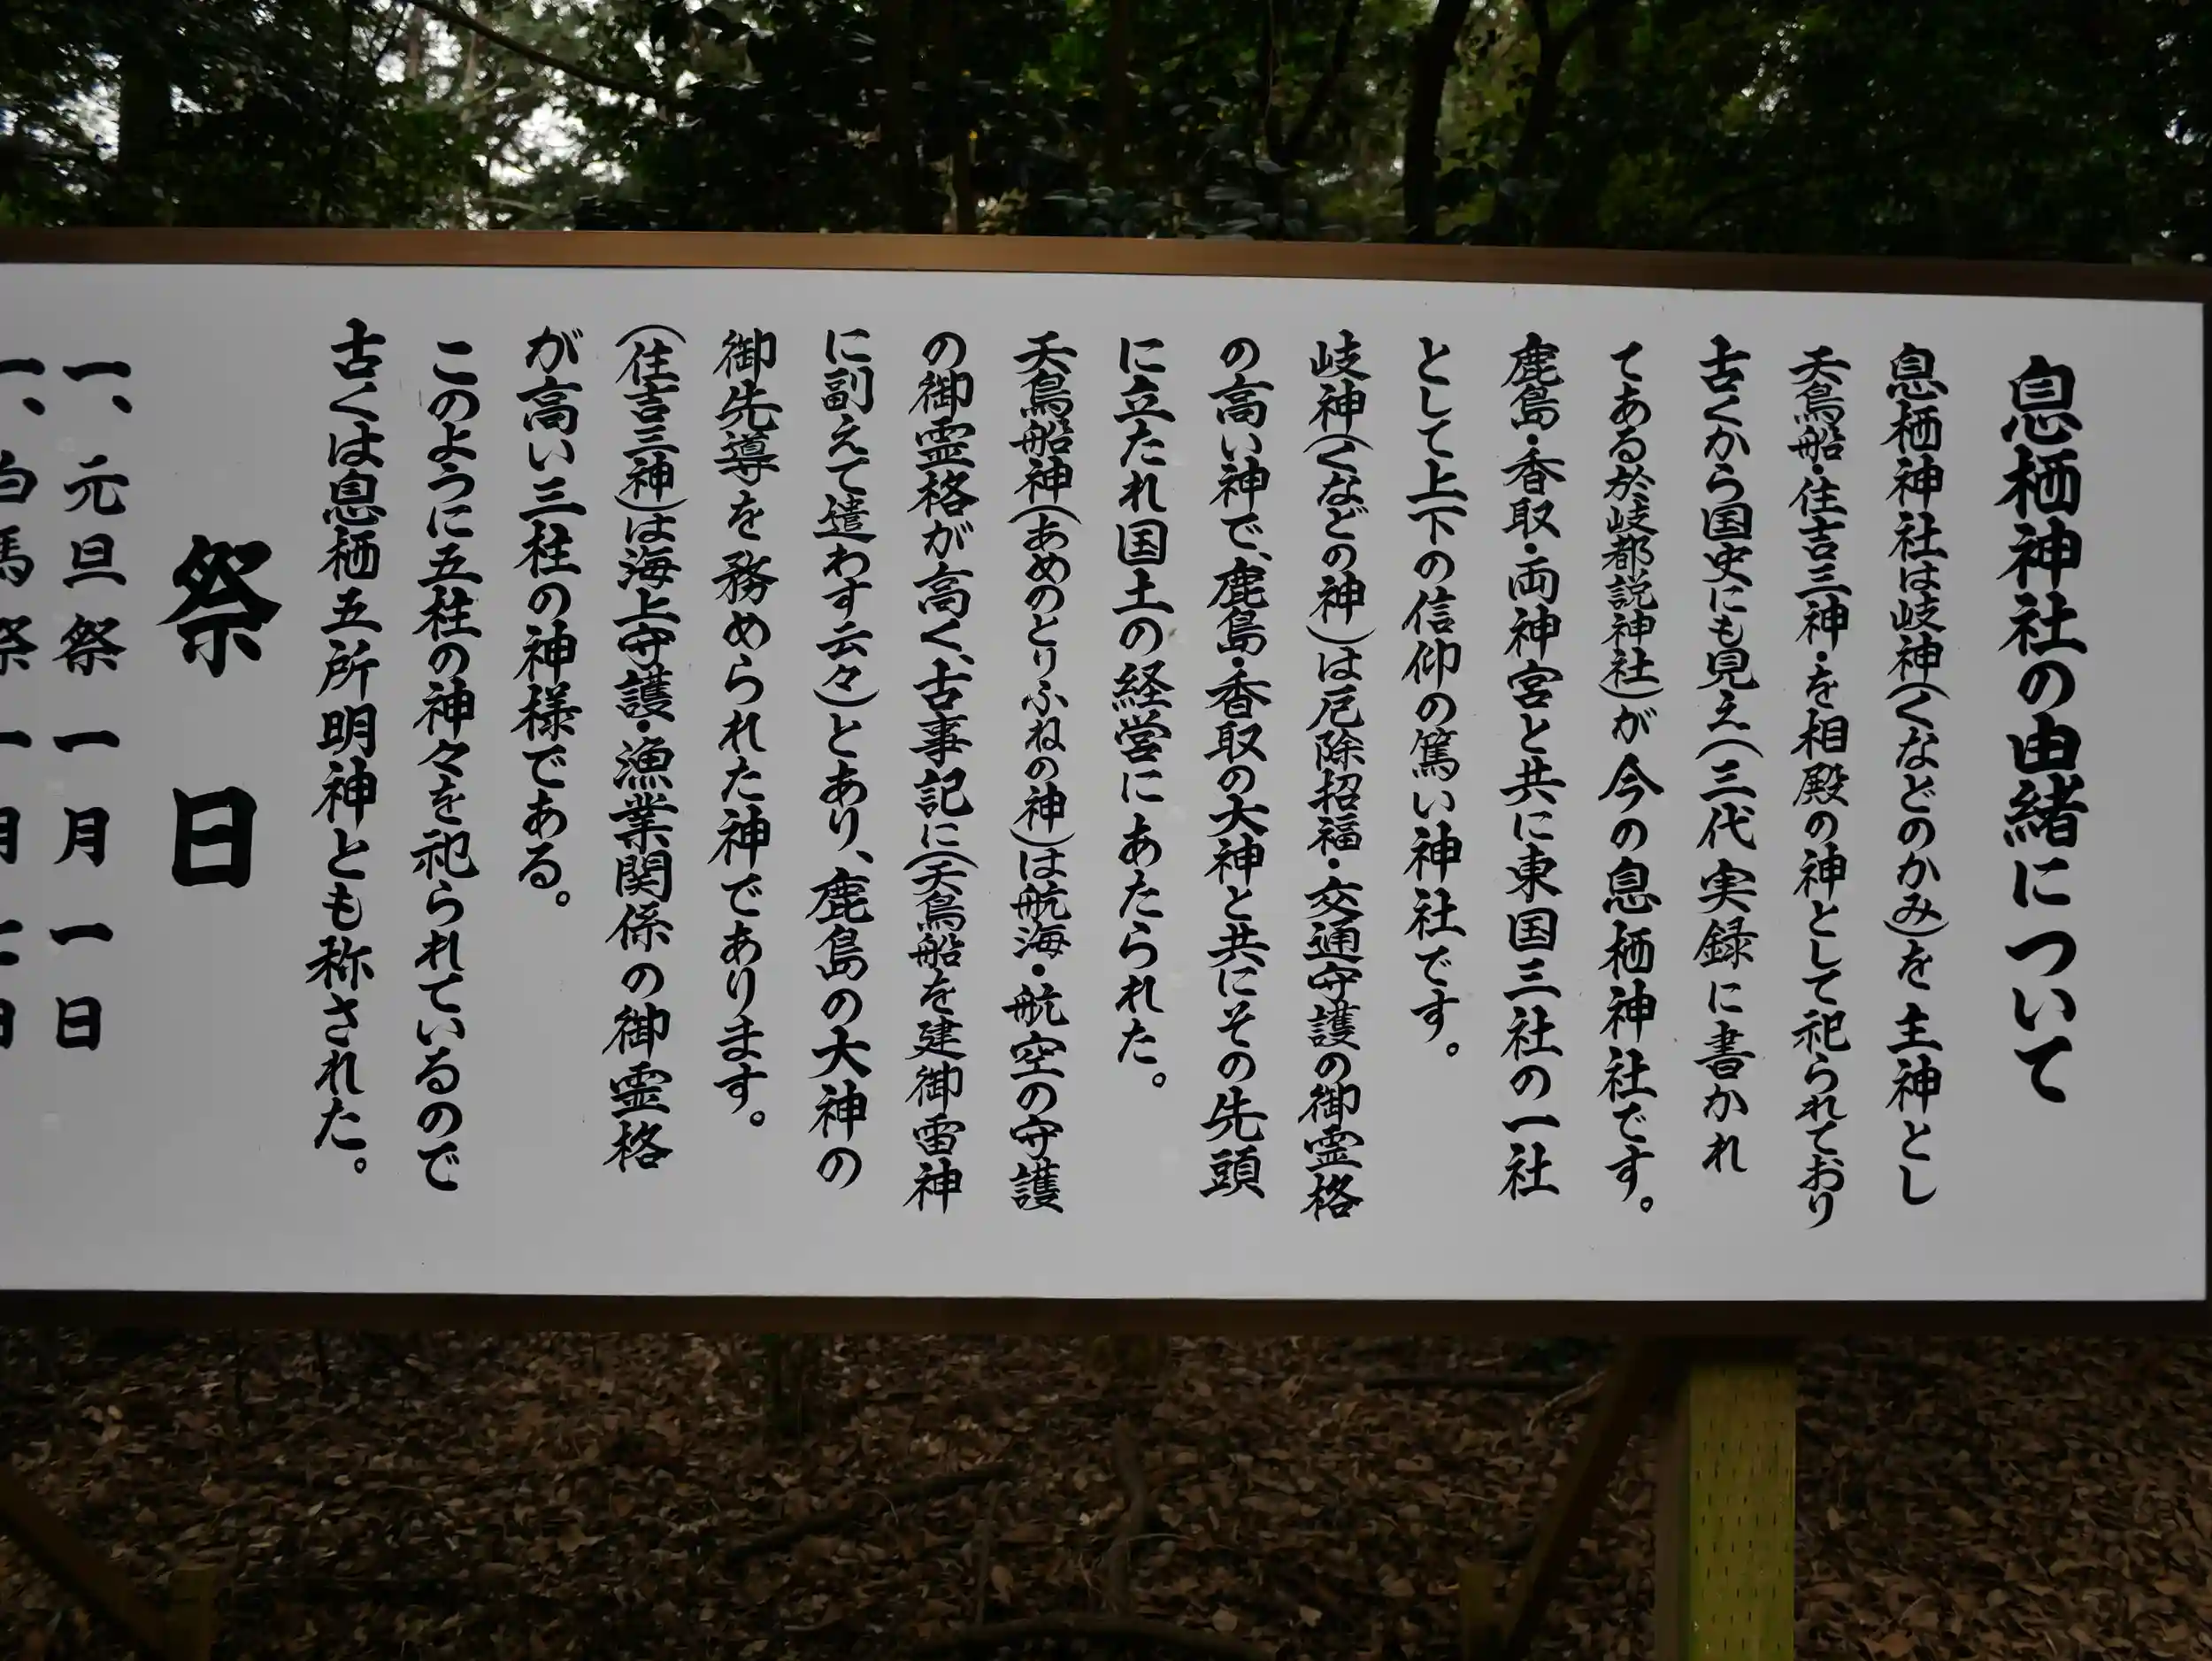 息栖神社の由緒について
息栖神社は岐神(くなどのかみ)を主神とし
天鳥船・住吉三神・を相殿の神として祀られており
古くから国史にも見え(三代実録に書かれ
てある於岐都説神社)が今の息栖神社です。
鹿島・香取・両神宮と共に東国三社の一社
として上下の信仰の篤い神社です。
岐神(くなどの神)は厄除招福・交通守護の御霊格
の高い神で、鹿島・香取の大神と共にその先頭
に立たれ国土の経営にあたられた。
天鳥船神(あめのとりふねの神)は航海・航空の守護
の御霊格が高く、古事記に(天鳥船を建御雷神
に副えて遣わす云々)とあり、鹿島の大神の
御先導を務められた神であります。
(住吉三神)は海上守護・漁業関係の御霊格
が高い三柱の神様である。
このように五柱の神々を祀られているので
古くは息栖五所明神とも称された。
祭日
一、元旦祭 一月一日
一、白馬祭 一月七日